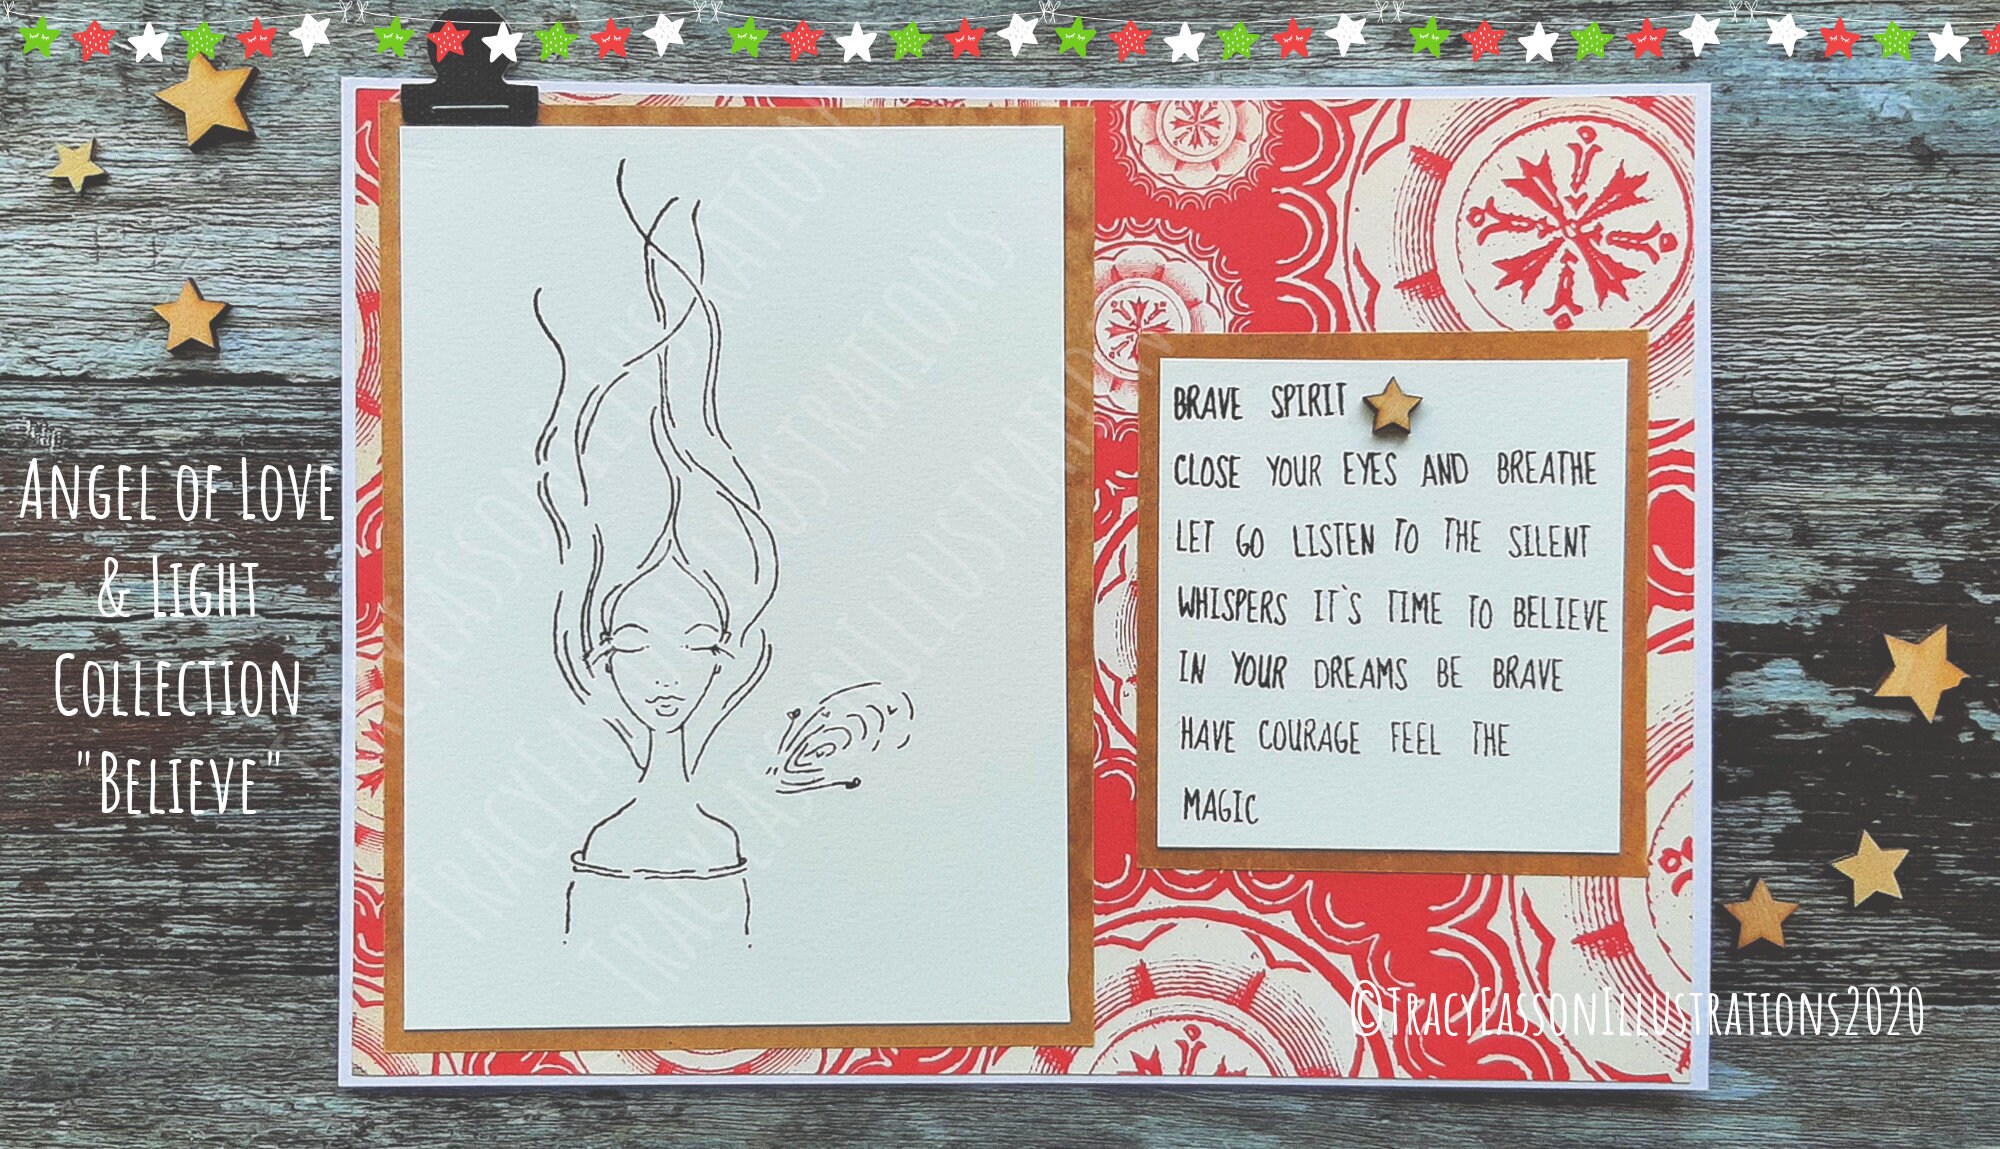 Angel of Love
& Light
Collection
"Believe"
BRAVE SPIRIT
CLOSE YOUR EYES AND BREATHE
LET GO LISTEN TO THE SILENT
WHISPERS IT`S TIME TO BELIEVE
IN YOUR DREAMS BE BRAVE
HAVE COURAGE FEEL THE
MAGIC
©TracyEassonIllustrations2020
TracyEassonIllustrations
TracyEassonIllustrations
TracyEassonIllustrations